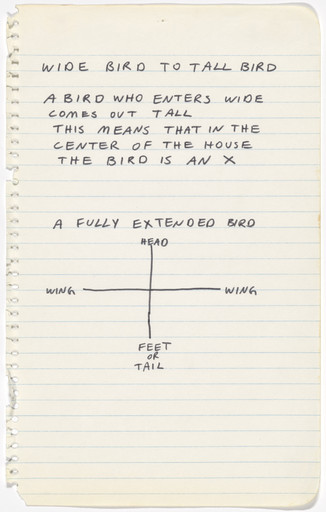 WIDE BIRD TO TALL BIRD
A BIRD WHO ENTERS WIDE
COMES OUT TALL
THIS MEANS THAT IN THE
CENTER OF THE HOUSE
THE BIRD IS AN X
A FULLY EXTENDED BIRD
HEAD
WING WING
FEET
OR
TAIL